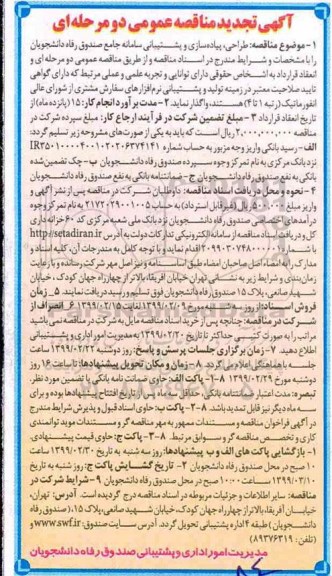 آگهی تجدید مناقصه عمومی دو مرحله ای
۱- موضوع مناقصه: طراحی، پیاده‌سازی و پشتیبانی سامانه جامع صندوق رفاه دانشجویان
را با مشخصات و شرایط مندرج در اسناد مناقصه و از طریق مناقصه عمومی دو مرحله ای و
انعقاد قرارداد به اشخاص حقوقی دارای توانایی و تجربه علمی و عملی مرتبط که دارای گواهی
تایید صلاحیت معتبر در زمینه تولید و پشتیبانی نرم‌افزارهای سفارش مشتری از شورای عالی
انفورماتیک (رتبه ۱ تا ۴) هستند، واگذار نماید. ۲- مدت برآورد انجام کار: ۱۵ (پانزده ماه) از
تاریخ انعقاد قرارداد ۳- مبلغ تضمین شرکت در فرآیند ارجاع کار: مبلغ سپرده شرکت در
مناقصه ۲,۰۰۰,۰۰۰,۰۰۰ ریال است که باید به یکی از صورت‌های مشروحه زیر تسلیم گردد:
الف- رسید بانکی واریز وجه مزبور به حساب شماره
نزد بانک مرکزی به نام تمرکز وجوه سپرده صندوق رفاه دانشجویان ب- چک تضمین شده
بانکی به نفع صندوق رفاه دانشجویان ج- ضمانتنامه بانکی به نفع صندوق رفاه دانشجویان
۴- نحوه و محل دریافت اسناد مناقصه: داوطلبان شرکت در مناقصه پس از نشر آگهی و
واریز مبلغ ریال (غیرقابل استرداد) به حساب ۲۱۷۲۰۲۹۰۰۱۰۰۵ به نام تمرکز وجوه
درآمدهای اختصاصی صندوق رفاه دانشجویان نزد بانک ملی شعبه مرکزی کد ۶۰ خزانه داری
کل و دریافت اسناد مناقصه از سامانه الکترونیکی تدارکات دولت به آدرس http://setadiran.ir
با شماره اقدام نمایند و با توجه کامل به مندرجات آن، کلیه اسناد و
مدارک را به امضاء صاحبان امضاء طبق اساسنامه و نیز اصل مهر شرکت رسانده و با رعایت
زمان‌بندی و شرایط زیر به نشانی تهران خیابان آفریقا، بالاتر از چهارراه جهان کودک، خیابان
شهید صانعی، پلاک ۱۵ صندوق رفاه دانشجویان فوق تسلیم و رسید دریافت نمایند. ۵- زمان
فروش اسناد: از روز سه شنبه مورخ ۱۳۹۹/۰۲/۰۹ لغایت ۱۳۹۹/۰۲/۱۵ ۶- انصراف از
شرکت در مناقصه: چنانچه پس از خرید اسناد مناقصه مایل به شرکت در مناقصه نمی باشید
مراتب را به صورت کتبی حداکثر تا تاریخ ۱۳۹۹/۰۲/۲۰ به مدیریت امور اداری و پشتیبانی
اطلاع دهید. ۷- زمان برگزاری جلسات پرسش و پاسخ: روز دوشنبه ۱۳۹۹/۰۲/۲۲ ساعت
جلسه با هماهنگی اعلام می گردد. ۸- زمان و مکان تحویل پیشنهادها: تا ساعت ۱۶ روز
دوشنبه مورخ ۱۳۹۹/۰۲/۲۹ ۸-۱- پاکت الف: حاوی ضمانت نامه بانکی یا تضمین مورد نظر.
تبصره: مدت اعتبار ضمانتنامه بانکی حداقل سه ماه از تاریخ افتتاح پیشنهادها بوده و برای
سه ماه دیگر نیز قابل تمدید باشد. ۸-۲- پاکت ب: حاوی اسناد قبول و پذیرش شرایط مندرج
در آگهی فراخوان مناقصه و مستندات ممهور به مهر مناقصه گر و مستندات موید توانمندی
کاری و تخصصی مناقصه گر و سوابق مرتبط. ۸-۳- پاکت ج: حاوی قیمت پیشنهادی.
۱- بازگشایی پاکت های الف و ب پیشنهادها: روز سه شنبه به تاریخ ۱۳۹۹/۰۲/۳۰
۱۰ صبح در محل صندوق رفاه دانشجویان ۲- تاریخ گشایش پاکت ج: روز شنبه به تاریخ
۱۳۹۹/۰۳/۱۰ ساعت ۱۰:۰۰ صبح در محل صندوق رفاه دانشجویان ۹- شرایط شرکت در
مناقصه: سایر اطلاعات و جزئیات مربوطه در اسناد مناقصه درج گردیده است. آدرس: تهران،
خیابان آفریقا، بالاتر از چهارراه جهان کودک، خیابان شهید صانعی، پلاک ۱۵، (صندوق رفاه
دانشجویان) طبقه ۴ اداره پشتیبانی تحویل گردد. آدرس سایت صندوق: www.swf.ir و
(تلفن: ۸۹۳۷۶۳۱۹)
مدیریت امور اداری و پشتیبانی صندوق رفاه دانشجویان